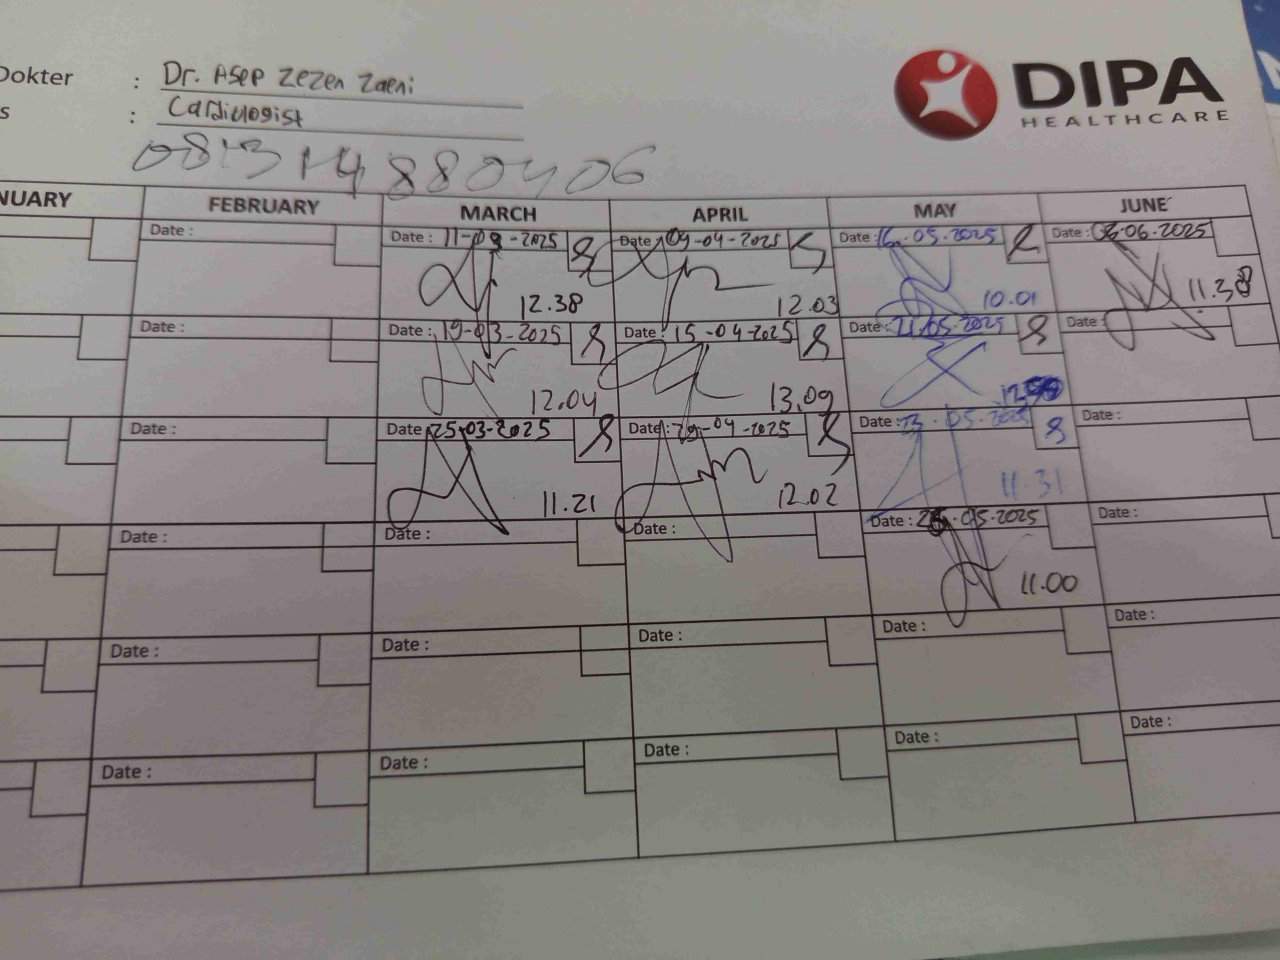 Dokter : Dr. Asep Zezen Zaeni
s : Cardiologist
DIPA
HEALTHCARE
NUARY FEBRUARY MARCH APRIL MAY JUNE
Date : Date : 11-03-2025 Date : 09-04-2025 Date : 16.05.2025 Date : 03.06.2025
12.38 12.03 10.01 11.38
Date : Date : 19-03-2025 Date : 15-04-2025 Date : 21.05.2025 Date :
12.04 13.09
Date : Date : 25-03-2025 Date : 29-04-2025 Date : 23.05.2025 Date :
11.21 12.02 11.31
Date : Date : Date : Date : 26.05.2025 Date :
11.00
Date : Date : Date : Date : Date :
Date : Date : Date : Date : Date :